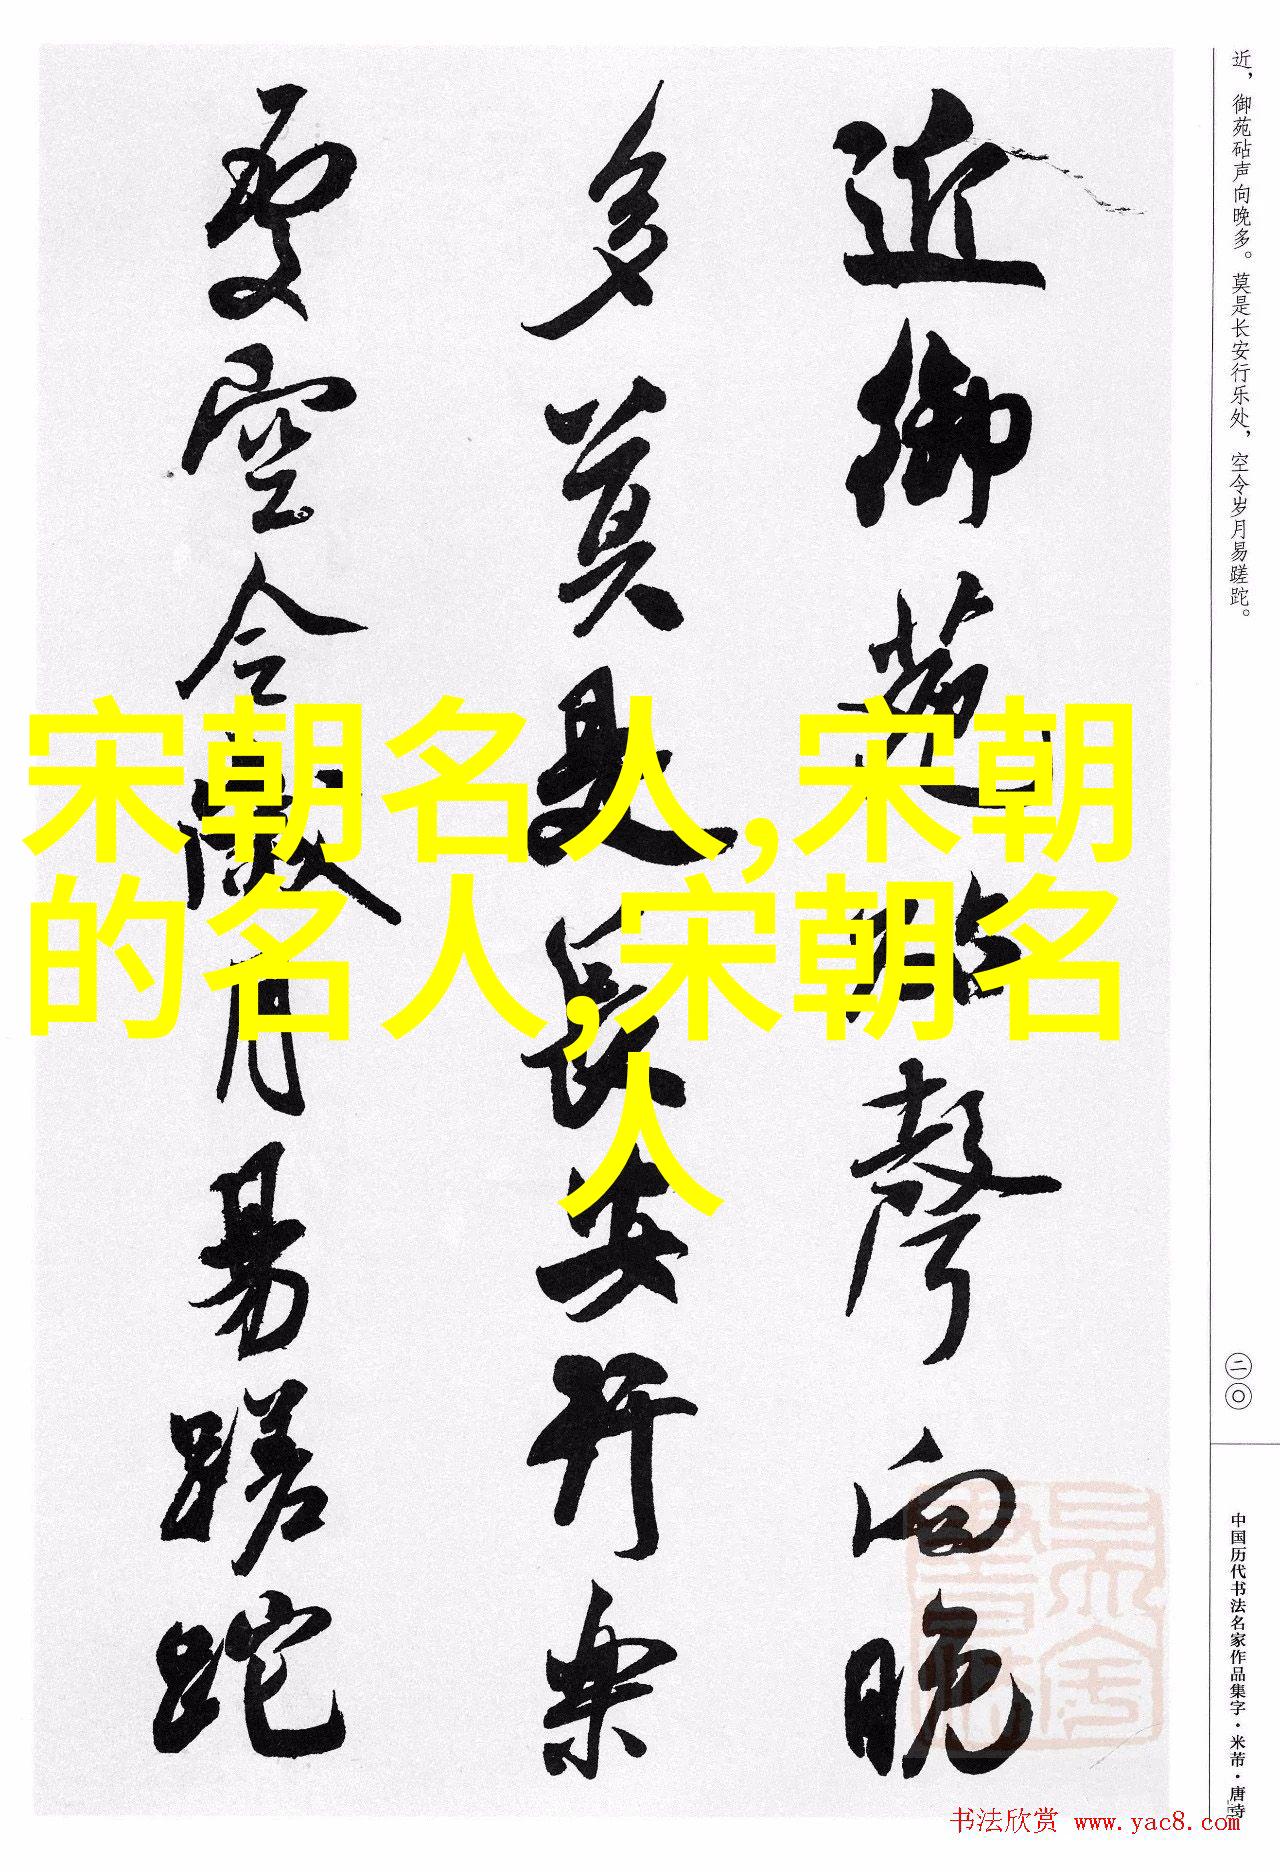 近，御苑砧声向晚多。莫是长安行乐处，空令岁月易蹉跎。
近御苑砧聲向晚
多莫是長安行樂
處空令歲月易蹉跎
宋朝名人,宋朝
的名人,宋朝名
人
二〇
中国历代书法名家作品集字·米芾·唐诗
书法欣赏 www.yac8.com